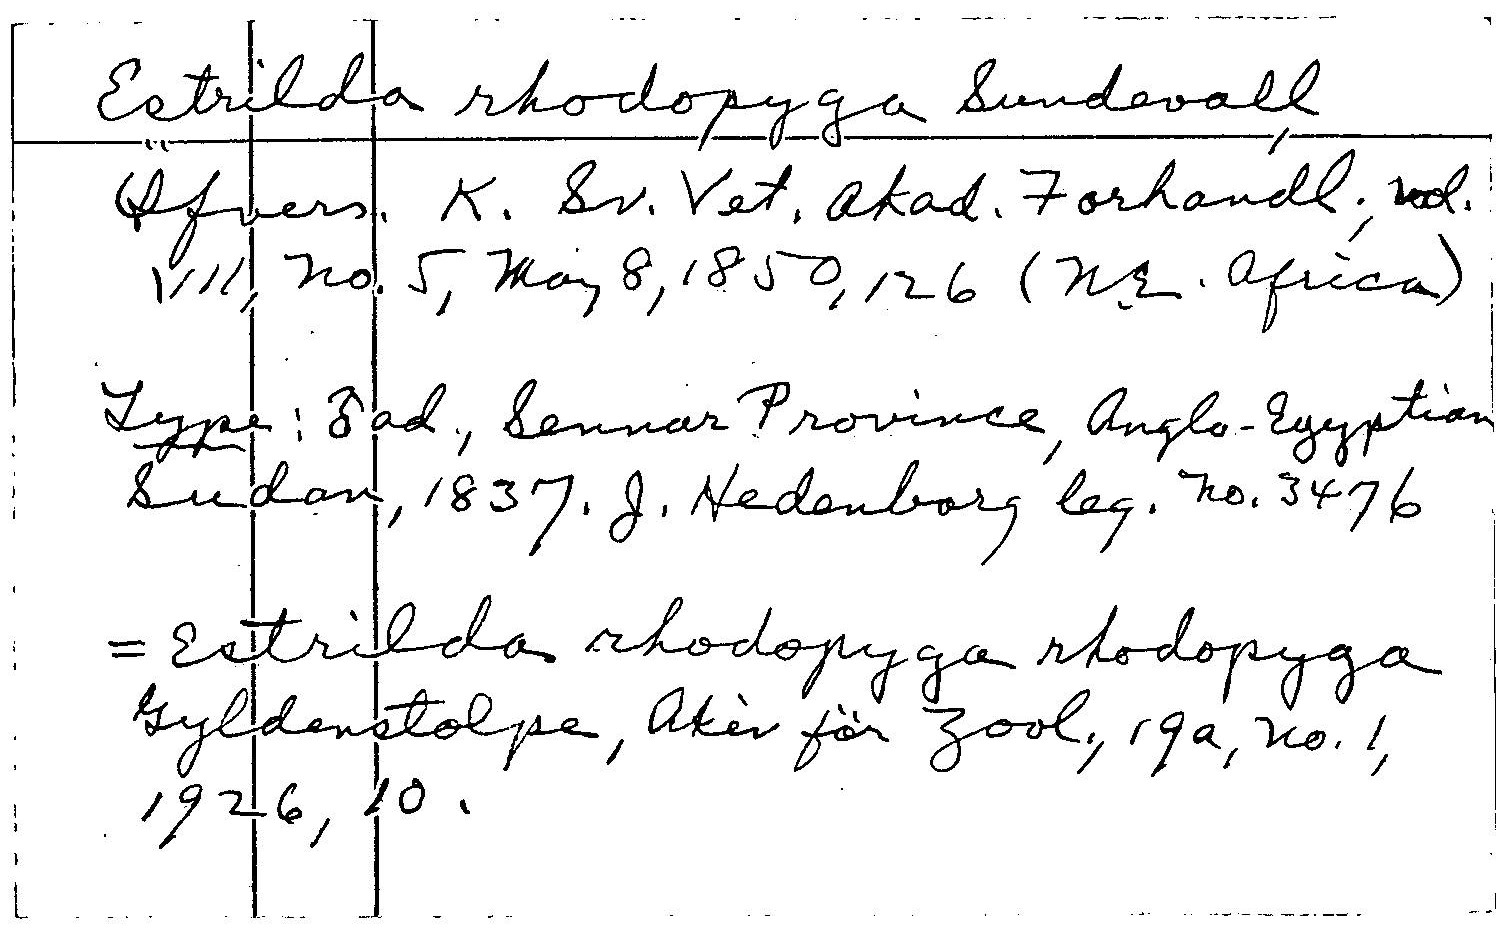 Estrilda rhodopyga Sundevall,
Öfvers. K. Sv. Vet. Akad. Forhandl., vol.
VIII, no. 5, May 8, 1850, 126 (N.E. Africa)
Type: ad., Sennar Province, Anglo-Egyptian
Sudan, 1837. J. Hedenborg leg. no. 3476
= Estrilda rhodopyga rhodopyga
Gyldenstolpe, Akiv för Zool., 19a, no. 1,
1926, 10.